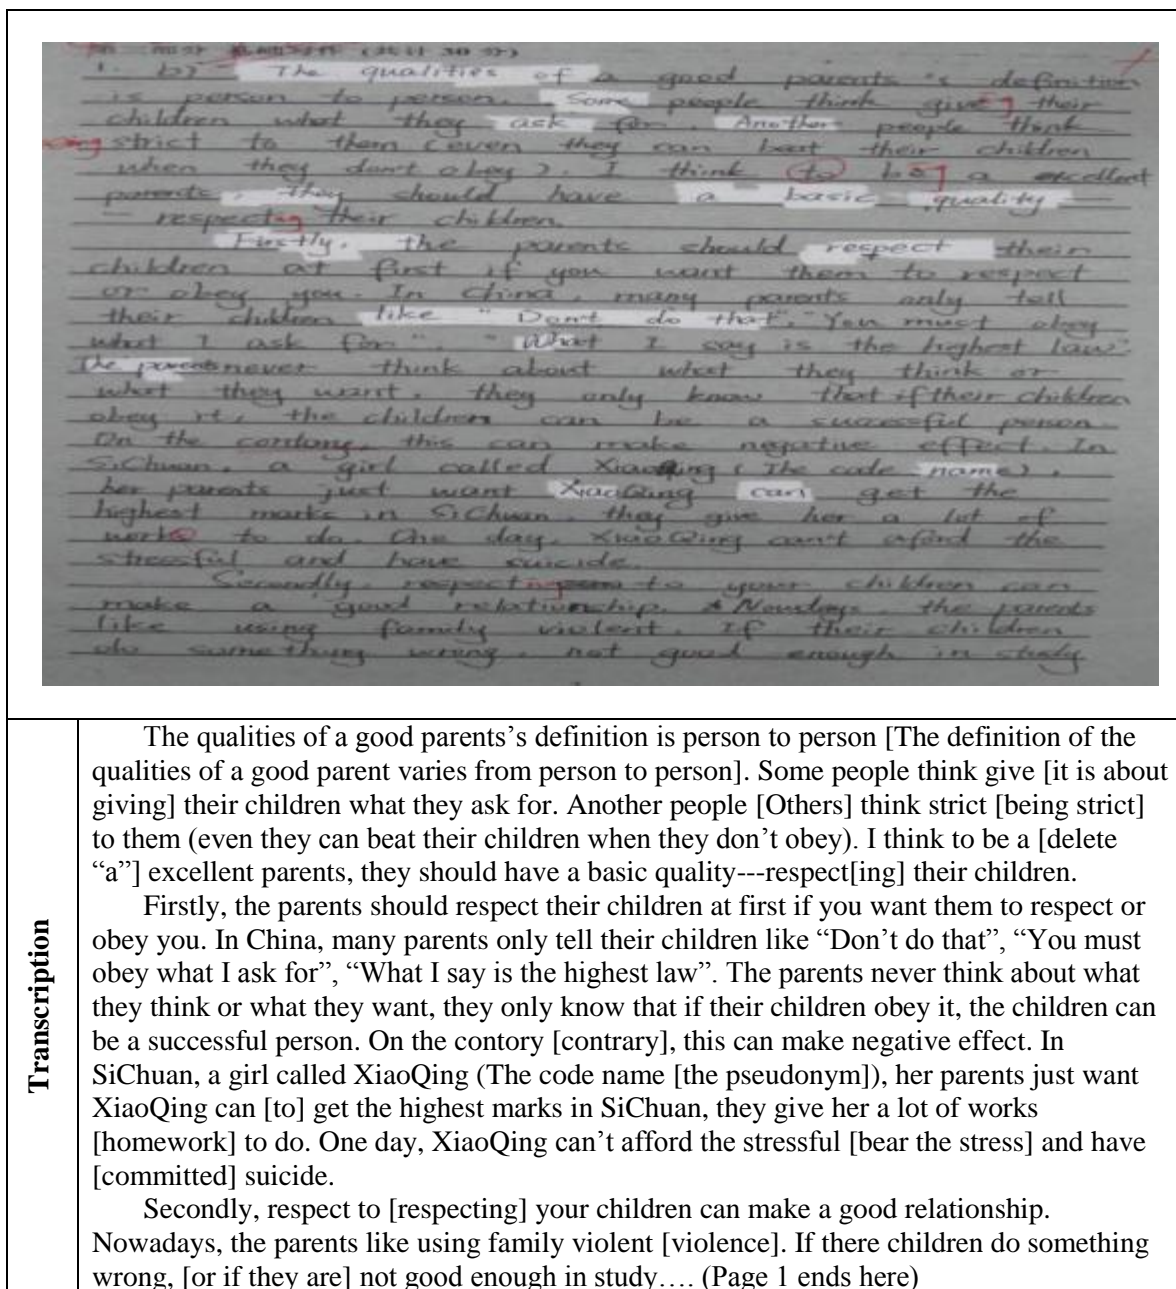 (共计 30 分)
1. b) The qualities of a good parents's definition
is person to person. Some people think giveing their
children what they ask for. Another people think
strict to them (even they can beat their children
when they don't obey). I think to be a excellent
parents, they should have a basic quality
— respecting their children.
Firstly, the parents should respect their
children at first if you want them to respect
or obey you. In China, many parents only tell
their children like "Don't do that", "You must obey
what I ask for", "What I say is the highest law".
The parents never think about what they think or
what they want, they only know that if their children
obey it, the children can be a successful person.
On the contory, this can make negative effect. In
SiChuan, a girl called XiaoQing (The code name),
her parents just want XiaoQing can get the
highest marks in SiChuan, they give her a lot of
works to do. One day, XiaoQing can't aford the
stressful and have suicide.
Secondly, respect to your children can
make a good relationship. Nowdays, the parents
like using family violent. If their children
do something wrong, not good enough in study
Transcription
The qualities of a good parents's definition is person to person [The definition of the
qualities of a good parent varies from person to person]. Some people think give [it is about
giving] their children what they ask for. Another people [Others] think strict [being strict]
to them (even they can beat their children when they don't obey). I think to be a [delete
“a”] excellent parents, they should have a basic quality---respect[ing] their children.
Firstly, the parents should respect their children at first if you want them to respect or
obey you. In China, many parents only tell their children like “Don't do that”, “You must
obey what I ask for”, “What I say is the highest law”. The parents never think about what
they think or what they want, they only know that if their children obey it, the children can
be a successful person. On the contory [contrary], this can make negative effect. In
SiChuan, a girl called XiaoQing (The code name [the pseudonym]), her parents just want
XiaoQing can [to] get the highest marks in SiChuan, they give her a lot of works
[homework] to do. One day, XiaoQing can't afford the stressful [bear the stress] and have
[committed] suicide.
Secondly, respect to [respecting] your children can make a good relationship.
Nowadays, the parents like using family violent [violence]. If there children do something
wrong, [or if they are] not good enough in study…. (Page 1 ends here)